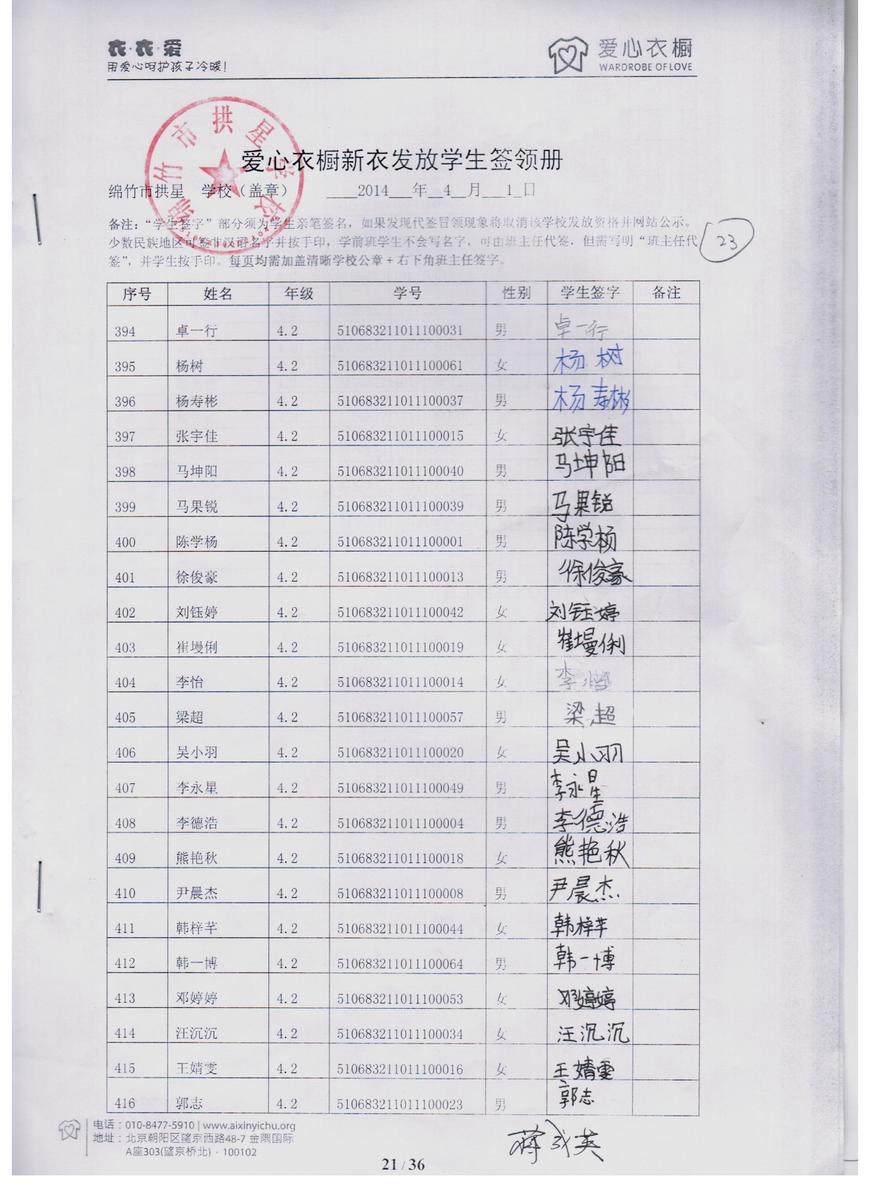 衣·衣·爱
用爱心呵护孩子冷暖!
爱心衣橱
WARDROBE OF LOVE
绵竹市拱星学校
爱心衣橱新衣发放学生签领册
绵竹市拱星 学校（盖章） 2014 年 4 月 1 日
备注：“学生签字”部分须为学生亲笔签名，如果发现代签冒领现象将取消该学校发放资格并网站公示。
少数民族地区可签非汉可名字并按手印，学前班学生不会写名字，可由班主任代签，但需写明“班主任代
签”，并学生按手印。每页均需加盖清晰学校公章+右下角班主任签字。
23
序号 姓名 年级 学号 性别 学生签字 备注
394 卓一行 4.2 510683211011100031 男 卓一行
395 杨树 4.2 510683211011100061 女 杨树
396 杨寿彬 4.2 510683211011100037 男 杨寿彬
397 张宇佳 4.2 510683211011100015 女 张宇佳
398 马坤阳 4.2 510683211011100040 男 马坤阳
399 马果锐 4.2 510683211011100039 男 马果锐
400 陈学杨 4.2 510683211011100001 男 陈学杨
401 徐俊豪 4.2 510683211011100013 男 徐俊豪
402 刘钰婷 4.2 510683211011100042 女 刘钰婷
403 崔墁俐 4.2 510683211011100019 女 崔墁俐
404 李怡 4.2 510683211011100014 女 李怡
405 梁超 4.2 510683211011100057 男 梁超
406 吴小羽 4.2 510683211011100020 女 吴小羽
407 李永星 4.2 510683211011100049 男 李永星
408 李德浩 4.2 510683211011100004 男 李德浩
409 熊艳秋 4.2 510683211011100018 女 熊艳秋
410 尹晨杰 4.2 510683211011100008 男 尹晨杰
411 韩梓芊 4.2 510683211011100044 女 韩梓芊
412 韩一博 4.2 510683211011100064 男 韩一博
413 邓婷婷 4.2 510683211011100053 女 邓婷婷
414 汪沉沉 4.2 510683211011100034 女 汪沉沉
415 王婧雯 4.2 510683211011100016 女 王婧雯
416 郭志 4.2 510683211011100023 男 郭志
电话：010-8477-5910 | www.aixinyichu.org
地址：北京朝阳区望京西路48-7 金隅国际
A座303(望京桥北) · 100102
蒋成英
21 / 36